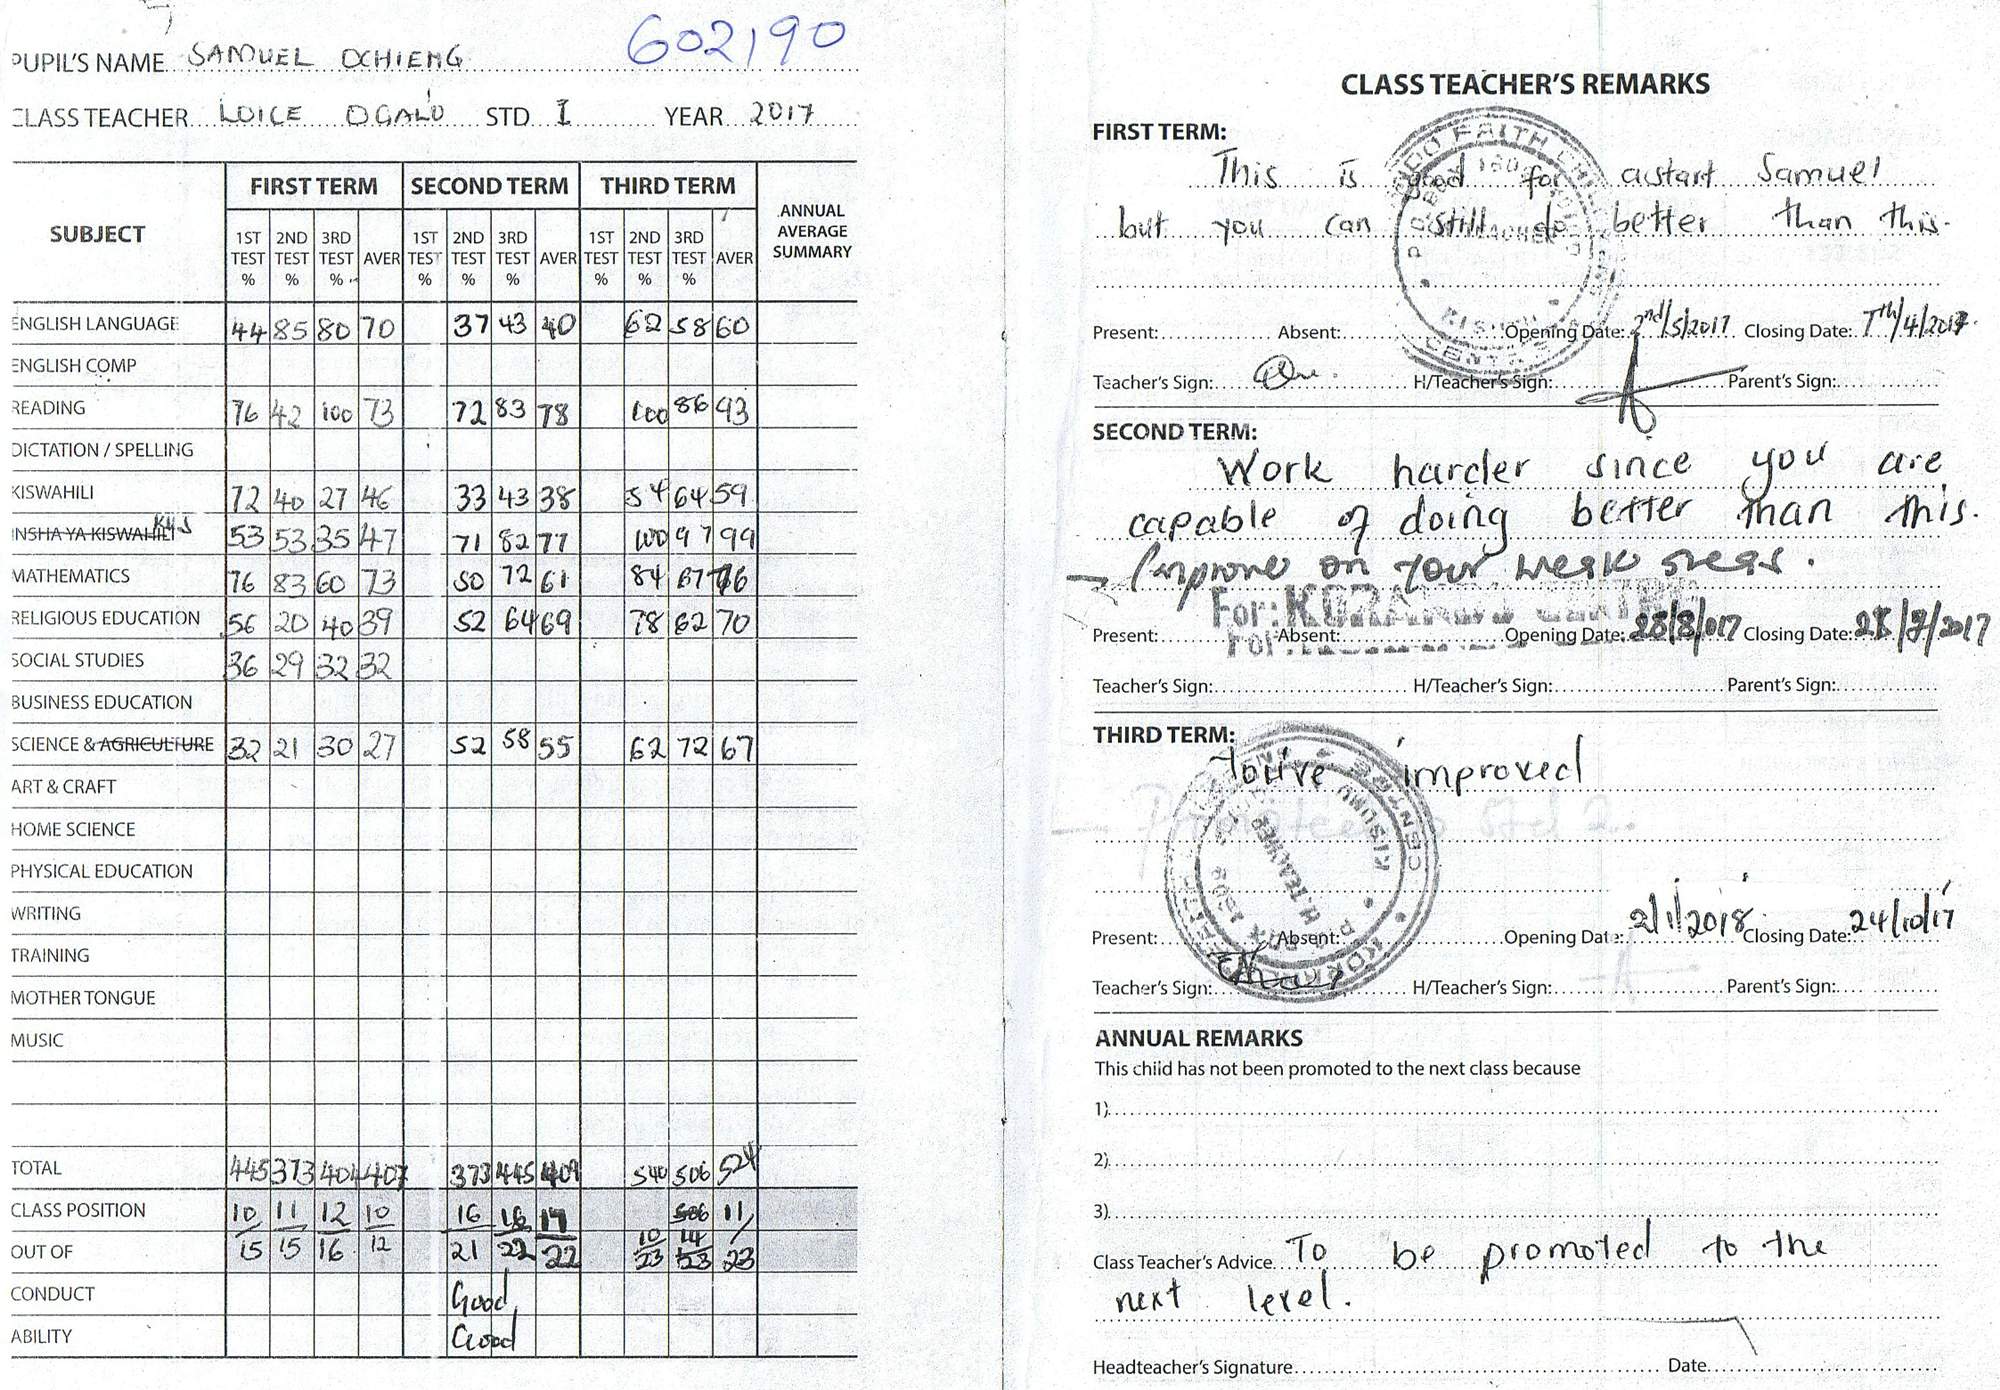 602190
PUPIL'S NAME SAMUEL OCHIENG
CLASS TEACHER LOICE OGALO STD I YEAR 2017
SUBJECT FIRST TERM SECOND TERM THIRD TERM ANNUAL AVERAGE SUMMARY
1ST TEST % 2ND TEST % 3RD TEST % AVER 1ST TEST % 2ND TEST % 3RD TEST % AVER 1ST TEST % 2ND TEST % 3RD TEST % AVER
ENGLISH LANGUAGE 44 85 80 70 37 43 40 62 58 60
ENGLISH COMP
READING 76 42 100 73 72 83 78 100 86 93
DICTATION / SPELLING
KISWAHILI 72 40 27 46 33 43 38 54 64 59
INSHA YA KISWAHILI 53 53 35 47 71 82 77 100 97 99
MATHEMATICS 76 83 60 73 50 72 61 84 67 76
RELIGIOUS EDUCATION 56 20 40 39 52 64 69 78 62 70
SOCIAL STUDIES 36 29 32 32
BUSINESS EDUCATION
SCIENCE & AGRICULTURE 32 21 30 27 52 58 55 62 72 67
ART & CRAFT
HOME SCIENCE
PHYSICAL EDUCATION
WRITING
TRAINING
MOTHER TONGUE
MUSIC
TOTAL 445 373 404 407 373 445 409 540 506 524
CLASS POSITION 10 11 12 10 16 16 17 10 14 11
OUT OF 15 15 16 12 21 22 22 23 23 23
CONDUCT Good
ABILITY Good
CLASS TEACHER'S REMARKS
FIRST TERM:
This is good for astart Samuel
but you can still do better than this.
Present: Absent: Opening Date: 2nd/5/2017 Closing Date: 7th/4/2017
Teacher's Sign: H/Teacher's Sign: Parent's Sign:
SECOND TERM:
Work harder since you are
capable of doing better than this.
Improve on your weak areas.
For:
Present: Absent: Opening Date: 28/8/017 Closing Date: 28/7/2017
Teacher's Sign: H/Teacher's Sign: Parent's Sign:
THIRD TERM:
You've improved
Promoted to Std 2.
Present: Absent: Opening Date: 2/1/2018 Closing Date: 24/10/17
Teacher's Sign: H/Teacher's Sign: Parent's Sign:
ANNUAL REMARKS
This child has not been promoted to the next class because
1)
2)
3)
Class Teacher's Advice To be promoted to the
next level.
Headteacher's Signature Date